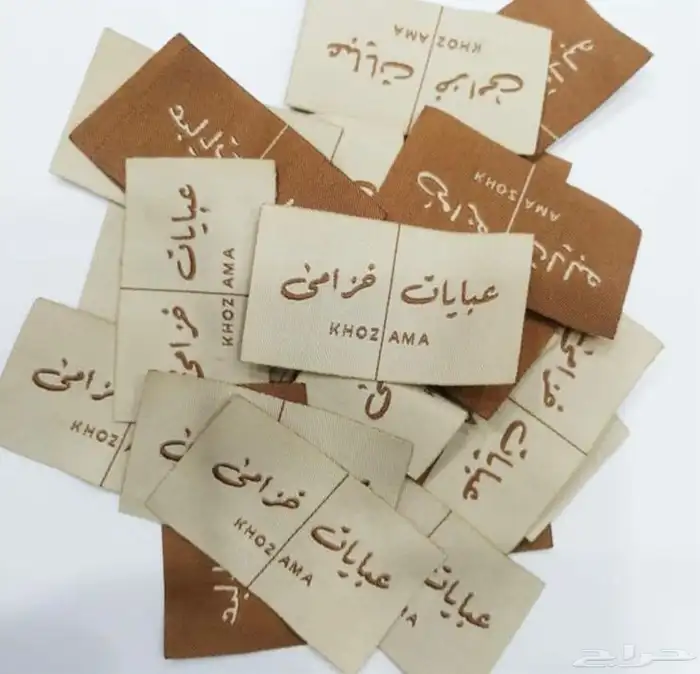 عبايات خزامى
KHOZAMA
عبايات خزامى
KHOZAMA
عبايات خزامى
KHOZAMA
عبايات خزامى
KHOZAMA
خزامى
KHOZ
عبايات
خزامى
عبايات
AMA
KHOZ
حراج